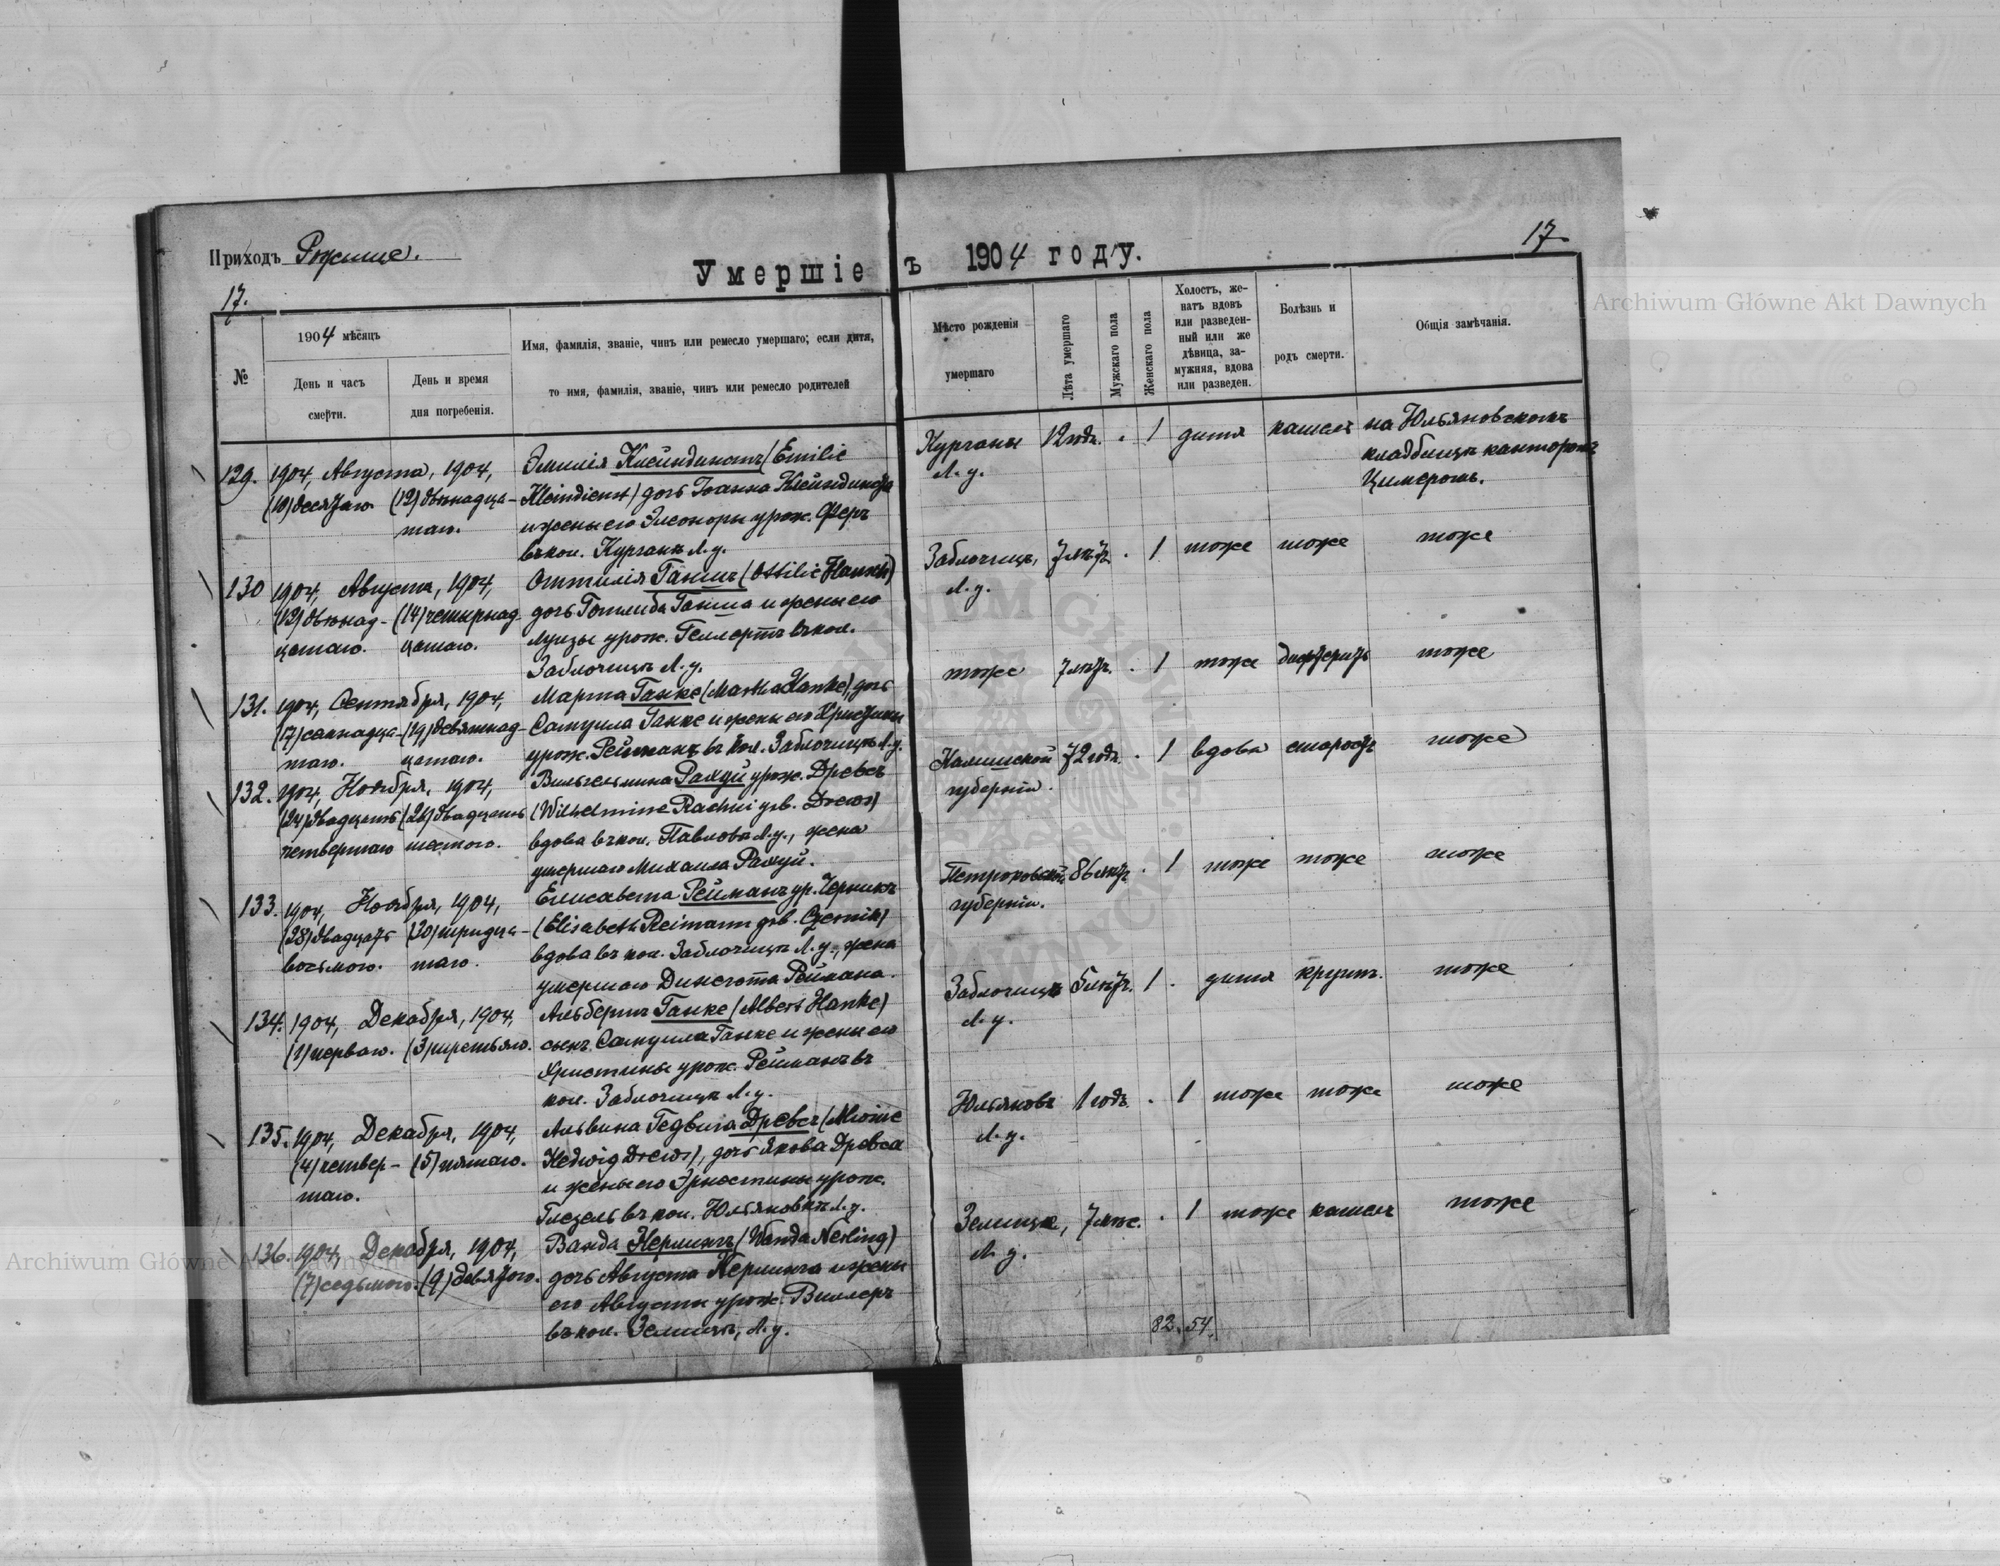 Приходъ Рожище.
Умершіе въ 1904 году.
17.
17.
№
1904 мѣсяцъ
День и часъ смерти.
День и время дня погребенія.
Имя, фамилія, званіе, чинъ или ремесло умершаго; если дитя,
то имя, фамилія, званіе, чинъ или ремесло родителей
Мѣсто рожденія
умершаго
Лѣта умершаго
Мужскаго пола
Женскаго пола
Холостъ, же-
натъ вдовъ
или разведен-
ный или же
дѣвица, за-
мужняя, вдова
или разведен.
Болѣзнь и
родъ смерти.
Общія замѣчанія.
129. 1904, Августа, 1904, Эмилія Клейндинстъ (Emilie Курганы 12 годъ. . 1 дитя кашель на Юльяновскомъ
(10) десятаго (12) двѣнадца- Kleindienst) дочь Іоанна Клейндинста Л. у. кладбищѣ канторомъ
таго. и жены его Элеоноры урож. Феръ Цимеромъ.
въ кол. Курганъ Л. у.
130 1904, Августа, 1904, Оттилія Ганке (Ottilie Hanke) Заблочищъ, 7 лѣтъ . 1 тоже тоже тоже
(12) двѣнад- (14) четырнад- дочь Готлиба Ганке и жены его Л. у.
цатаго. цатаго. Луизы урож. Геллертъ въ кол.
Заблочищъ Л. у.
131. 1904, Сентября, 1904, Марта Ганке (Martha Hanke), дочь тоже 7 лѣтъ. . 1 тоже дифтеритъ тоже
(17) семнадца- (19) девятнад- Самуила Ганке и жены его Христины
таго. цатаго. урож. Рейманъ въ кол. Заблочищъ Л. у.
132. 1904, Ноября, 1904, Вильгельмина Рахуй урож. Древсъ Калишской 72 годъ. . 1 вдова старость тоже
(24) двадцать (26) двадцать (Wilhelmine Rachui geb. Drews) губерніи.
четвертаго шестого. вдова въ кол. Павловка Л. у., жена
умершаго Михаила Рахуй.
133. 1904, Ноября, 1904, Елисавета Рейманъ ур. Черникъ Петроковской 86 лѣтъ . 1 тоже тоже тоже
(28) двадцать (30) тридца- (Elisabeth Reimann geb. Czernik) губерніи.
восьмого. таго. вдова въ кол. Заблочищъ Л. у., жена
умершаго Реймана.
134. 1904, Декабря, 1904, Альбертъ Ганке (Albert Hanke) Заблочищъ 5 лѣтъ. 1 . дитя крупъ. тоже
(1) перваго. (3) третьяго. сынъ Самуила Ганке и жены его Л. у.
Христины урож. Рейманъ въ
кол. Заблочищъ Л. у.
135. 1904, Декабря, 1904, Альвина Гедвига Древсъ (Alwine Юльяновъ 1 годъ. . 1 тоже тоже тоже
(4) четвер- (5) пятаго. Hedwig Drews), дочь Якова Древса Л. у.
таго. и жены его Эрнестины урож.
въ кол. Юльяновкѣ Л. у.
136. 1904, Декабря, 1904, Ванда Нерлингъ (Wanda Nerling) Земище, 7 . 1 тоже кашель тоже
(7) седьмого. (9) девятаго. дочь Августа Нерлинга и жены Л. у.
его Августы урож.
въ кол. Л. у.
82. 54.
Archiwum Główne Akt Dawnych
Archiwum Główne Akt Dawnych